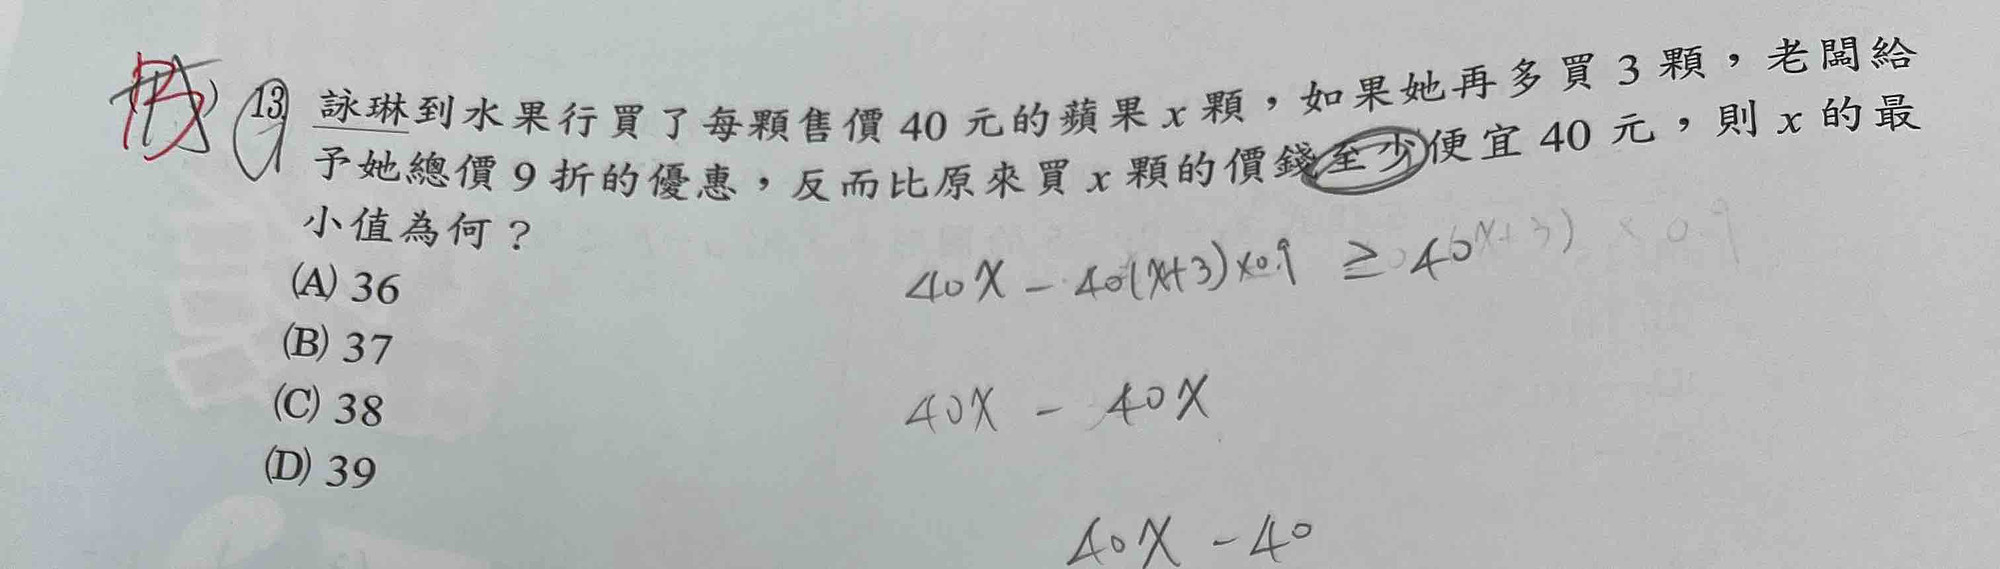 13 詠琳到水果行買了每顆售價 40 元的蘋果 x 顆，如果她再多買 3 顆，老闆給
予她總價 9 折的優惠，反而比原來買 x 顆的價錢至少便宜 40 元，則 x 的最
小值為何？
(A) 36
(B) 37
(C) 38
(D) 39
40x - 40(x+3)×0.9 ≥ 40
(x+3) × 0.9
40x - 40x
40x - 40